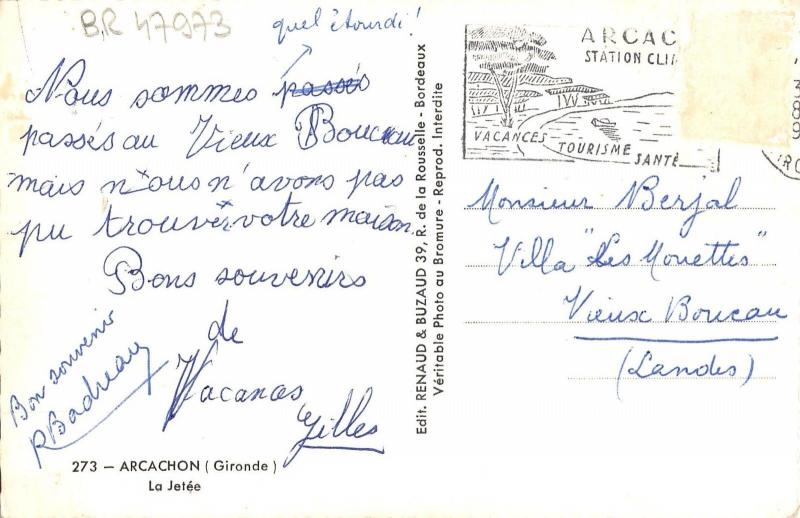 BR 47973
quel étourdi!
Nous sommes passés
passés au Vieux Boucau
mais nous n'avons pas
pu trouver votre maison.
Bons souvenirs
de
Vacances
Gilles
Bon souvenir
R Badreau
273 — ARCACHON ( Gironde )
La Jetée
Edit. RENAUD & BUZAUD 39, R. de la Rousselle - Bordeaux
Véritable Photo au Bromure - Reprod. Interdite
ARCAC
STATION CLI
VACANCES
TOURISME
SANTÉ
Monsieur Berjal
Villa "Les Mouettes"
Vieux Boucau
(Landes)